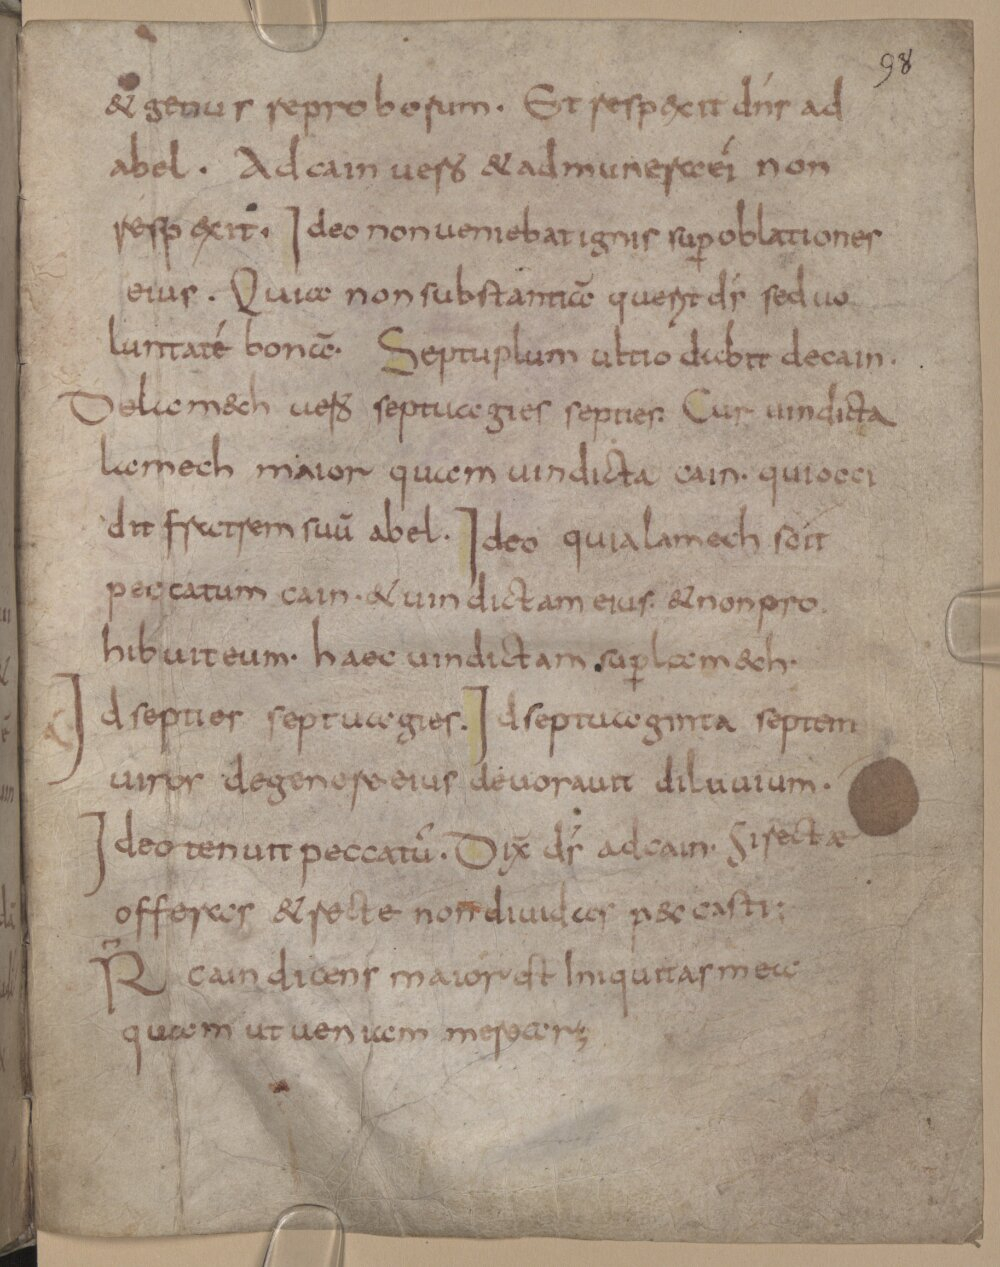 98
& genus reproborum. Et respexit dns ad
abel. Ad cain uero & ad munera ei non
respexit. Ideo non ueniebat ignis sup oblationes
eius. Quia non substantiā querit ds sed uo
luntatē bonā. Septuplum ultio dabit de cain.
De lamech uero septuagies septies. Cur uindicta
lamech maior quam uindicta cain. qui occi
dit fratrem suū abel. Ideo quia lamech scit
peccatum cain. & uindictam eius. & non pro
hibuit eum. haec uindictam sup lamech.
Id septies septuagies. Id septuaginta septem
uiros de genere eius deuorauit diluuium.
Ideo tenuit peccatū. Dix ds ad cain. Si recte
offeras & recte non diuidas peccasti;
R cain dicens maior est Iniquitas mea
quam ut ueniam merear;